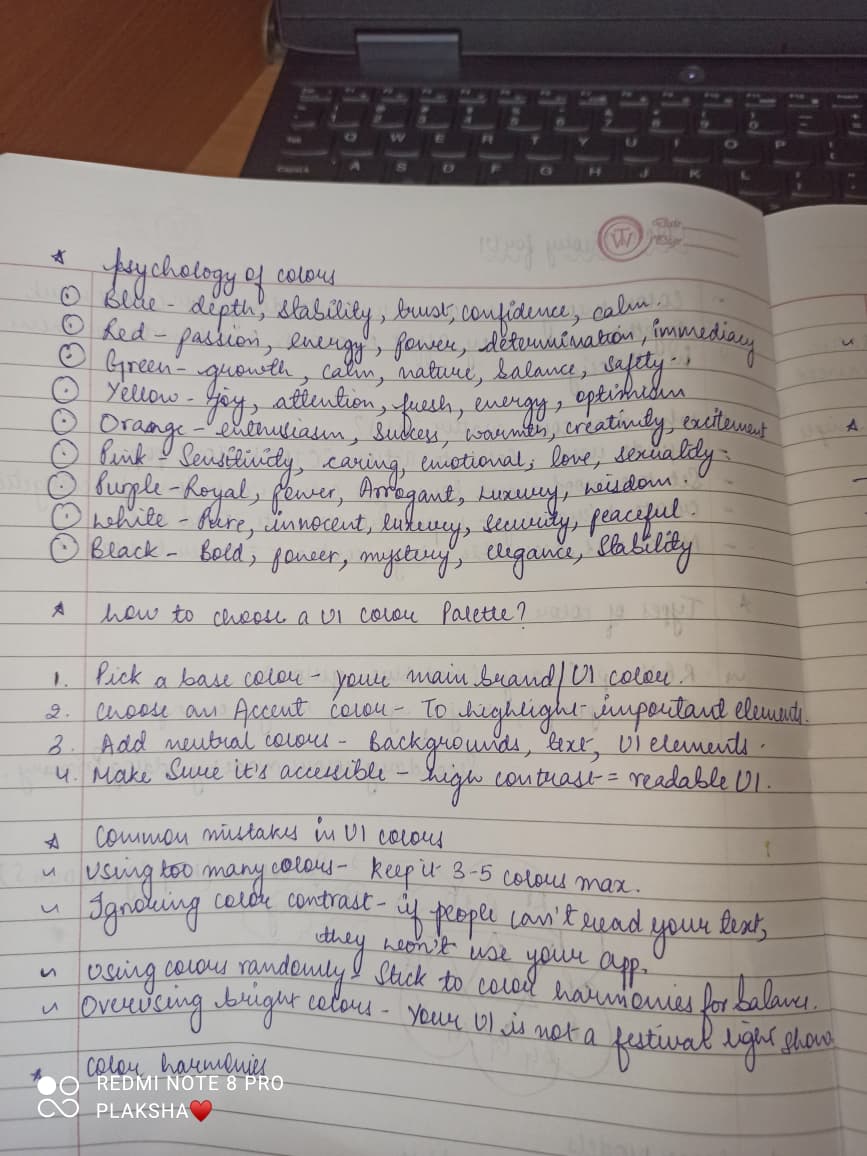 * Psychology of colors
Blue - depth, stability, trust, confidence, calm.
Red - passion, energy, power, determination, immediacy
Green - growth, calm, nature, balance, safety.
Yellow - Joy, attention, fresh, energy, optimism
Orange - enthusiasm, success, warmth, creativity, excitement
Pink - Sensitivity, caring, emotional, love, sexuality.
Purple - Royal, power, Arrogant, luxury, wisdom.
White - Pure, innocent, luxury, security, peaceful.
Black - Bold, power, mystery, elegance, Stability
* How to choose a UI color Palette?
1. Pick a base color - your main brand/UI color.
2. Choose an Accent color - To highlight important elements.
3. Add neutral colors - Backgrounds, text, UI elements.
4. Make Sure it's accessible - high contrast = readable UI.
* Common mistakes in UI colors
Using too many colors - keep it 3-5 colors max.
Ignoring color contrast - if people can't read your text,
they won't use your app.
Using colors randomly - Stick to color harmonies for balance.
Overusing bright colors - Your UI is not a festival light show
* Color harmonies
REDMI NOTE 8 PRO
PLAKSHA❤️